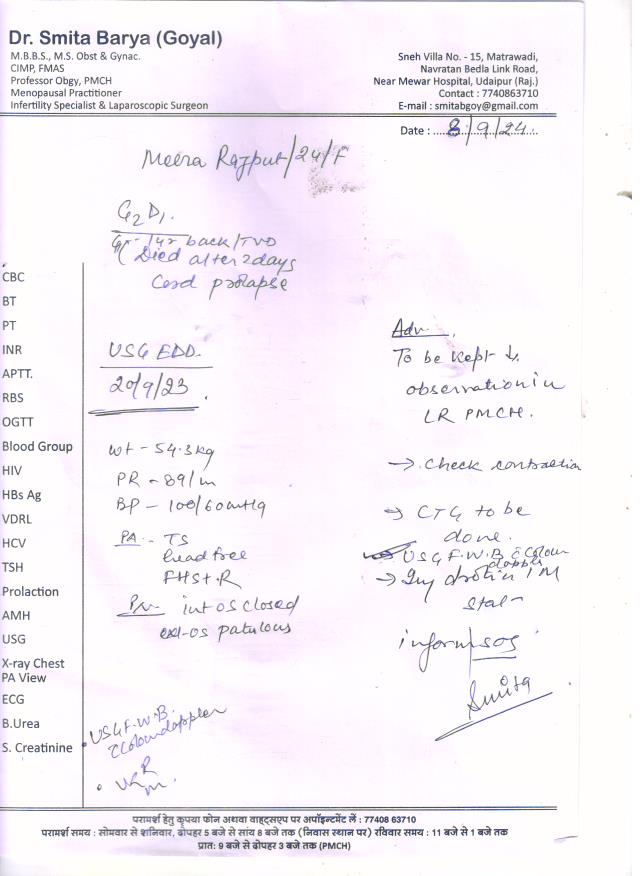 Dr. Smita Barya (Goyal)
M.B.B.S., M.S. Obst & Gynac.
CIMP, FMAS
Professor Obgy, PMCH
Menopausal Practitioner
Infertility Specialist & Laparoscopic Surgeon
Sneh Villa No. - 15, Matrawadi,
Navratan Bedla Link Road,
Near Mewar Hospital, Udaipur (Raj.)
Contact : 7740863710
E-mail : smitabgoy@gmail.com
Date : 8/9/24
Meera Rajput/24/F
G2D1.
1yr back/TVD
Died after 2 days
Cord prolapse
CBC
BT
PT
INR
APTT.
RBS
OGTT
Blood Group
HIV
HBs Ag
VDRL
HCV
TSH
Prolaction
AMH
USG
X-ray Chest
PA View
ECG
B.Urea
S. Creatinine
USG EDD.
20/9/23.
wt - 54.3kg
PR - 89/m
BP - 100/60mmHg
PA - TS
head free
FHS+R
int os closed
ext-os patulous
USG F.W.B.
c Colour doppler
Adv.
To be kept ↓
observation in
LR PMCH.
→ Check contraction
→ CTG to be
done.
USG F.W.B c Colour
doppler
→ Inj drotin IM
stat
inform/sos
Smita
परामर्श हेतु कृपया फोन अथवा वाह्टसएप पर अपॉइन्टमेंट लें : 77408 63710
परामर्श समय : सोमवार से शनिवार, ढोपहर 5 बजे से सांय 8 बजे तक (निवास स्थान पर) रविवार समय : 11 बजे से 1 बजे तक
प्रात: 9 बजे से ढोपहर 3 बजे तक (PMCH)